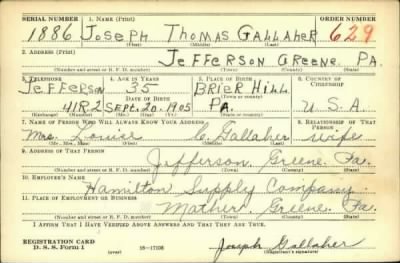 SERIAL NUMBER 1. NAME (Print) ORDER NUMBER
1886 JOSEPH THOMAS GALLAHER 629
(First) (Middle) (Last)
2. ADDRESS (Print)
JEFFERSON GREENE PA.
(Number and street or R. F. D. number) (Town) (County) (State)
3. TELEPHONE 4. AGE IN YEARS 5. PLACE OF BIRTH 6. COUNTRY OF CITIZENSHIP
JEFFERSON 35 BRIER HILL
DATE OF BIRTH (Town or county)
41R2 SEPT. 20. 1905 PA. U.S.A.
(Exchange) (Number) (Mo.) (Day) (Yr.) (State or country)
7. NAME OF PERSON WHO WILL ALWAYS KNOW YOUR ADDRESS 8. RELATIONSHIP OF THAT PERSON
Mrs. Louise C. Gallaher wife
(Mr., Mrs., Miss) (First) (Middle) (Last)
9. ADDRESS OF THAT PERSON
Jefferson, Greene, Pa.
(Number and street or R. F. D. number) (Town) (County) (State)
10. EMPLOYER'S NAME
Hamilton Supply Company.
11. PLACE OF EMPLOYMENT OR BUSINESS
Mather, Greene, Pa.
(Number and street or R. F. D. number) (Town) (County) (State)
I AFFIRM THAT I HAVE VERIFIED ABOVE ANSWERS AND THAT THEY ARE TRUE.
REGISTRATION CARD
D. S. S. Form 1 (over) 16-17105 Joseph Gallaher
(Registrant's signature)